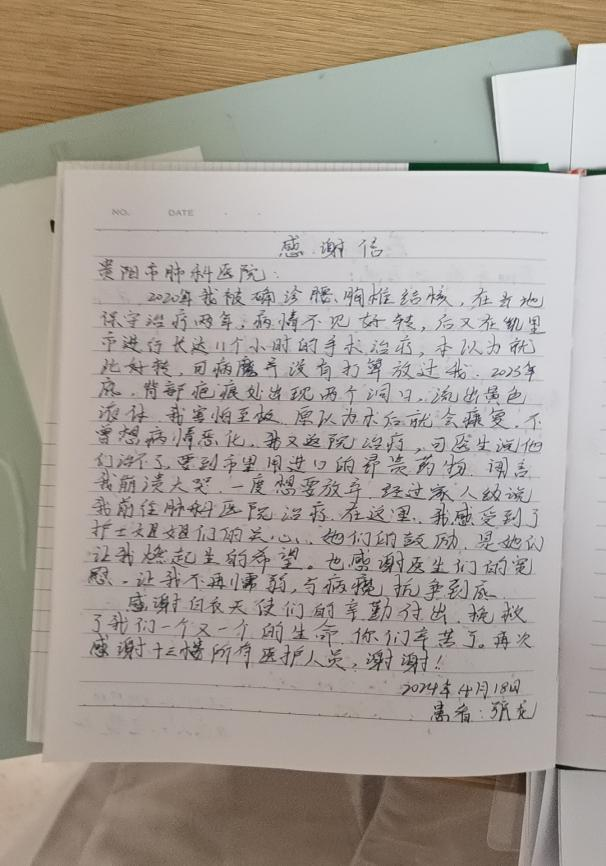 NO. DATE
感谢信
贵阳市肺科医院:
2020年我被确诊腰、胸椎结核,在当地
保守治疗两年,病情不见好转,后又在凯里
市进行长达11个小时的手术治疗,本以为就
此好转,可病魔并没有打算放过我。2023年
底,背部疤痕处出现两个洞口,流出黄色
液体,我害怕至极,原以为术后就会痊愈,不
曾想病情恶化,我又返院治疗,可医生说他
们治不了,要到市里用进口的昂贵药物,闻言
我崩溃大哭,一度想要放弃,经过家人劝说
我前往肺科医院治疗,在这里,我感受到了
护士姐姐们的关心、她们的鼓励,是她们
让我燃起生的希望。也感谢医生们的宽
慰,让我不再懦弱,与病魔抗争到底
感谢白衣天使们的辛勤付出,拯救
了我们一个又一个的生命,你们辛苦了。再次
感谢十三楼所有医护人员,谢谢!!
2024年4月18日
患者:张龙